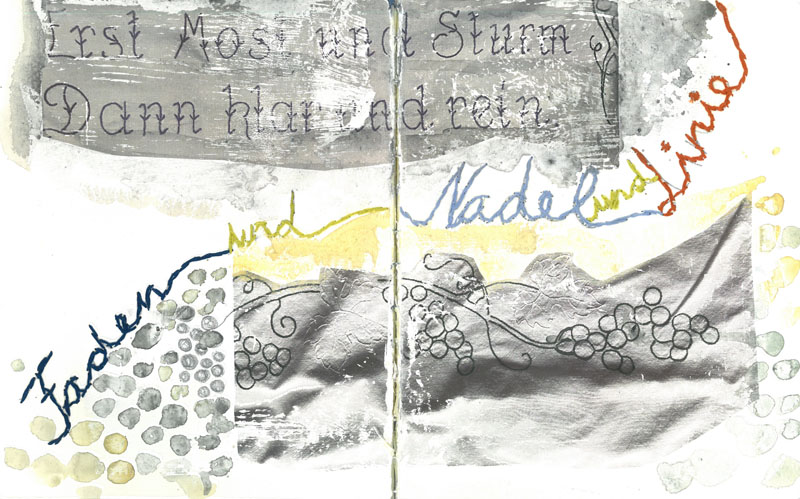 Erst Most und Sturm
Dann klar und rein.
Faden und Nadel und Linie